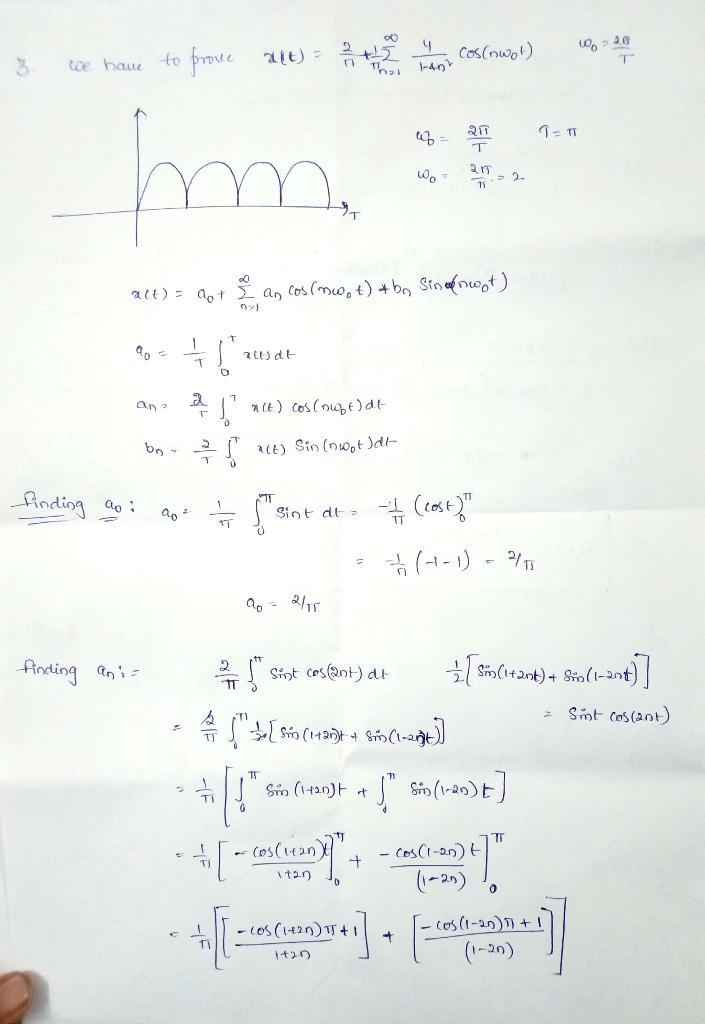 3. we have to prove x(t) = 2/π + 1/π ∑_{n=1}^{∞} 4/(1-4n²) cos(nω₀t) ω₀ = 2π/T
ω₀ = 2π/T T = π
ω₀ = 2π/π = 2
T
x(t) = a₀ + ∑_{n=1}^{∞} aₙ cos(nω₀t) + bₙ sin(nω₀t)
a₀ = 1/T ∫₀^T x(t) dt
aₙ = 2/T ∫₀^T x(t) cos(nω₀t) dt
bₙ = 2/T ∫₀^T x(t) sin(nω₀t) dt
finding a₀ : a₀ = 1/π ∫₀^π sint dt = -1/π (cost)₀^π
= -1/π (-1-1) = 2/π
a₀ = 2/π
finding aₙ := 2/π ∫₀^π sint cos(2nt) dt 1/2 [sin(1+2nt) + sin(1-2nt)]
= 2/π ∫₀^π 1/2 [sin(1+2n)t + sin(1-2n)t)] = sint cos(2nt)
= 1/π [∫₀^π sin(1+2n)t + ∫₀^π sin(1-2n)t]
= 1/π [-cos(1+2n)t/(1+2n)]₀^π + -cos(1-2n)t/(1-2n)]₀^π
= 1/π [[-cos(1+2n)π+1/(1+2n)] + [-cos(1-2n)π+1/(1-2n)]]